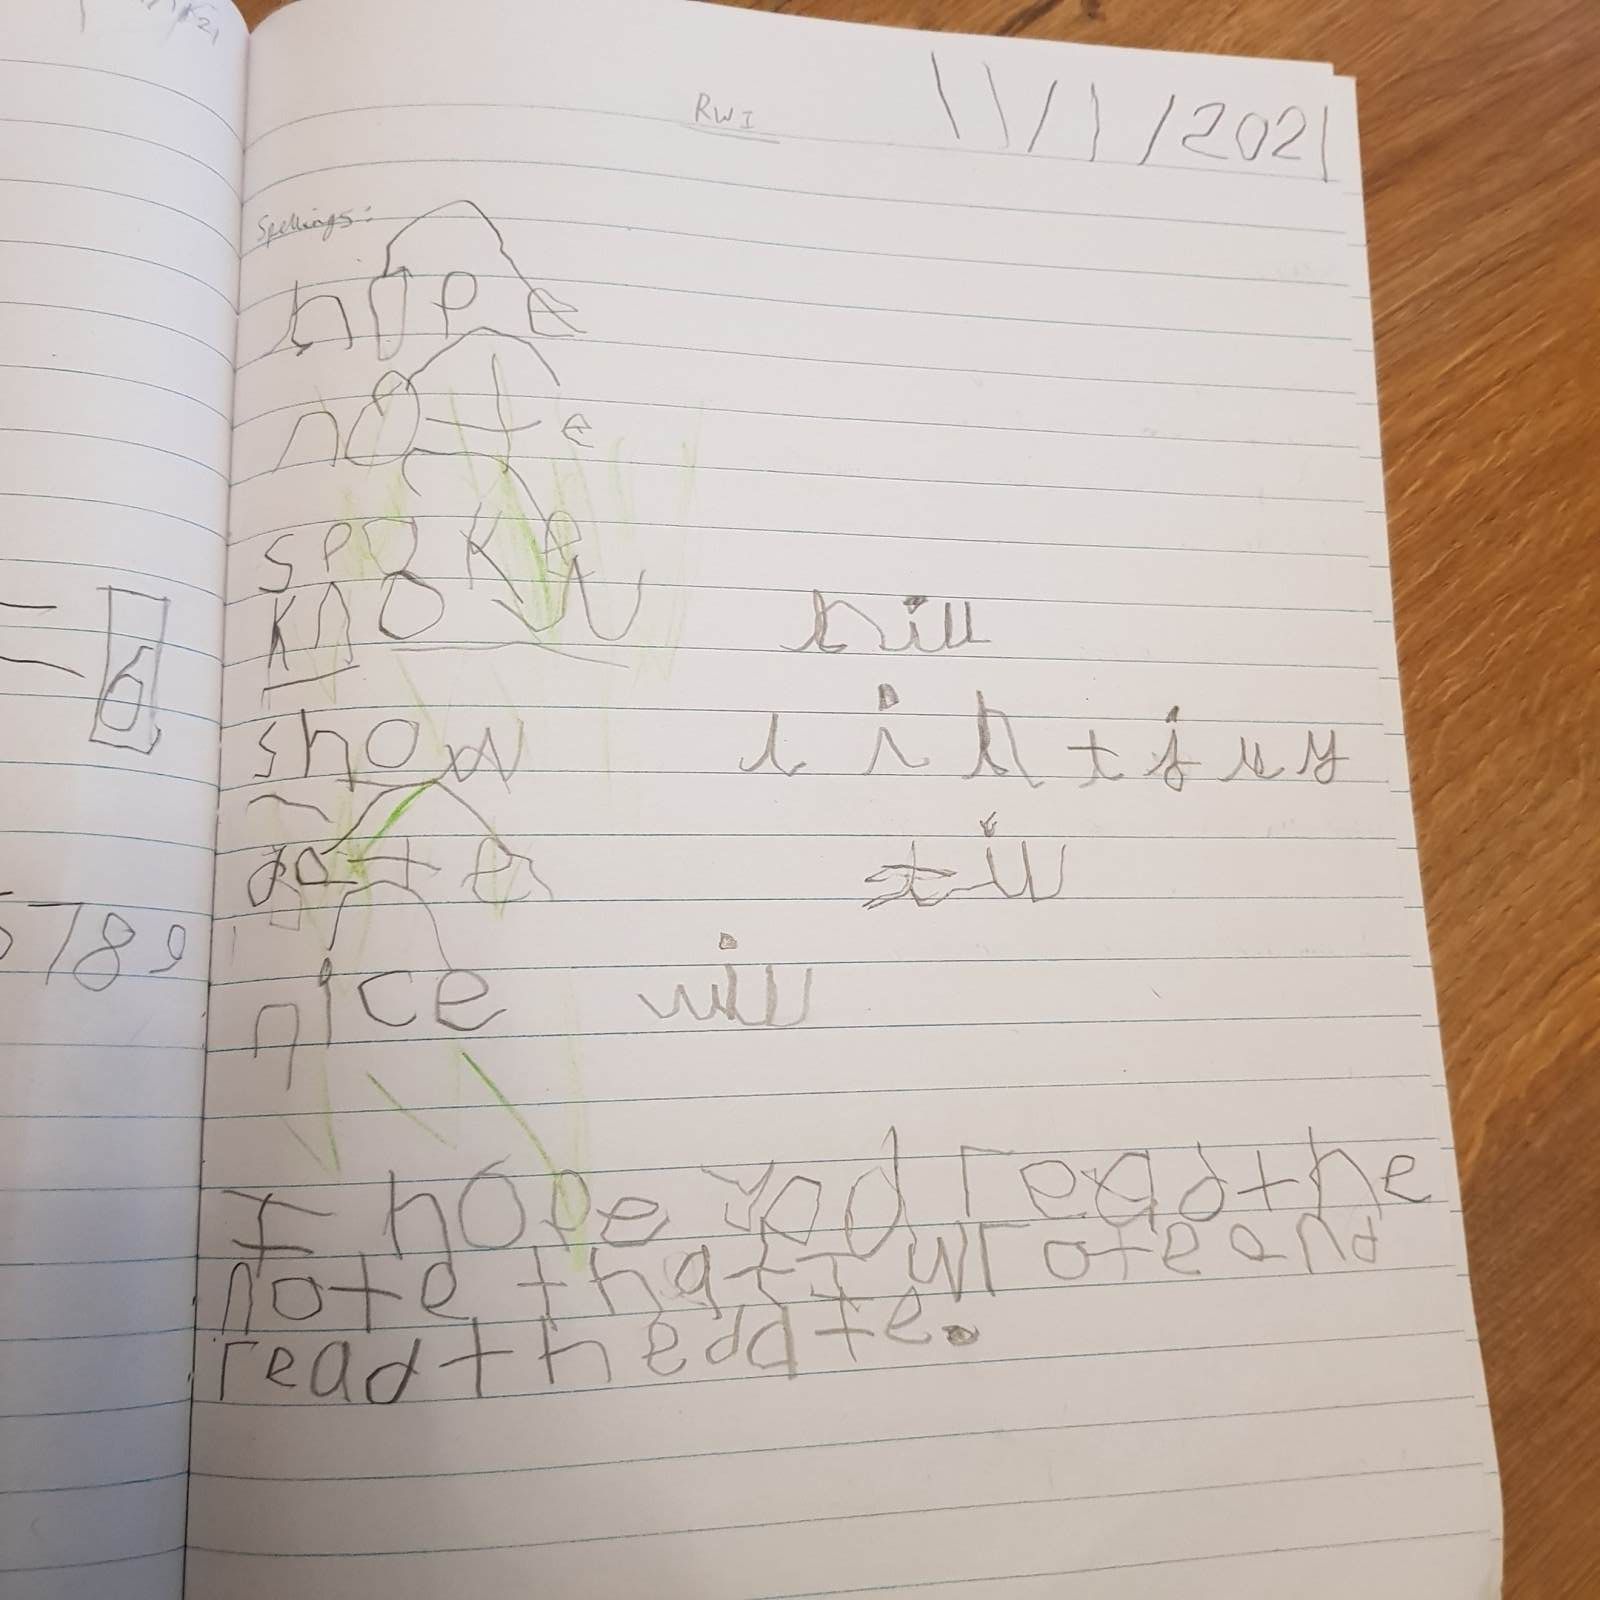 RWI
11/1/2021
Spellings:
hope
note
spoke
know hill
show l i h t j u y
date till
nice will
= 6
5789
I hope you read the
note that I wrote and
read the date.